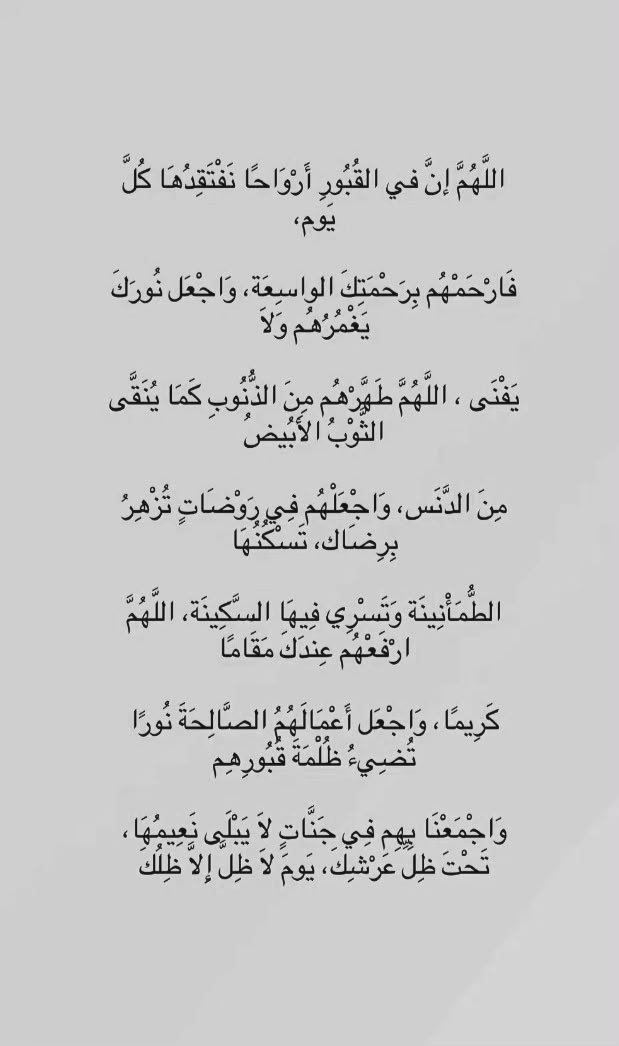 اللَّهُمَّ إنَّ في القُبُورِ أَرْوَاحًا نَفْتَقِدُهَا كُلَّ
يَوم،
فَارْحَمْهُم بِرَحْمَتِكَ الواسِعَة، وَاجْعَل نُورَكَ
يَغْمُرُهُم وَلاَ
يَفْنَى ، اللَّهُمَّ طَهَّرْهُم مِنَ الذُّنُوبِ كَمَا يُنَقَّى
الثَّوْبُ الأَبْيَضُ
مِنَ الدَّنَس، وَاجْعَلْهُم فِي رَوْضَاتٍ تُزْهِرُ
بِرِضَاك، تَسْكُنُهَا
الطُّمَأْنِينَة وَتَسْرِي فِيهَا السَّكِينَة، اللَّهُمَّ
ارْفَعْهُم عِندَكَ مَقَامًا
كَرِيمًا، وَاجْعَل أَعْمَالَهُمُ الصَّالِحَةَ نُورًا
تُضِيءُ ظُلْمَةَ قُبُورِهِم
وَاجْمَعْنَا بِهِم فِي جَنَّاتٍ لاَ يَبْلَى نَعِيمُهَا،
تَحْتَ ظِلِّ عَرْشِكَ، يَومَ لاَ ظِلَّ إِلاَّ ظِلُكَ